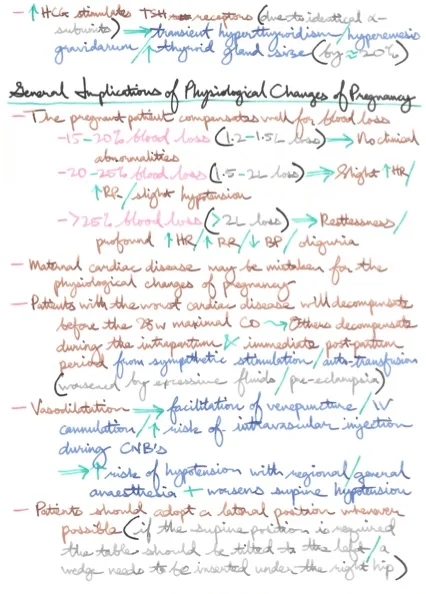 - ↑HCG stimulates TSH receptors (due to identical α-
subunits) → transient hyperthyroidism/hyperemesis
gravidarum/↑thyroid gland size (by ≈20%)
General Implications of Physiological Changes of Pregnancy
- The pregnant patient compensates well for blood loss
-15-20% blood loss (1.2-1.5L loss) → No clinical
abnormalities
-20-25% blood loss (1.5-2L loss) → Slight ↑HR/
↑RR/slight hypotension
->25% blood loss (>2L loss) → Restlessness/
profound ↑HR/↑RR/↓BP/oliguria
- Maternal cardiac disease may be mistaken for the
physiological changes of pregnancy
- Patients with the worst cardiac disease will decompensate
before the 28w maximal CO → Others decompensate
during the intrapartum/immediate post-partum
period from sympathetic stimulation/auto-transfusion
(worsened by excessive fluids/pre-eclampsia)
- Vasodilatation → facilitation of venepuncture/IV
cannulation/↑risk of intravascular injection
during CNB's
→ ↑risk of hypotension with regional/general
anaesthesia + worsens supine hypotension
- Patients should adopt a lateral position wherever
possible (if the supine position is required
the table should be tilted to the left/a
wedge needs to be inserted under the right hip)